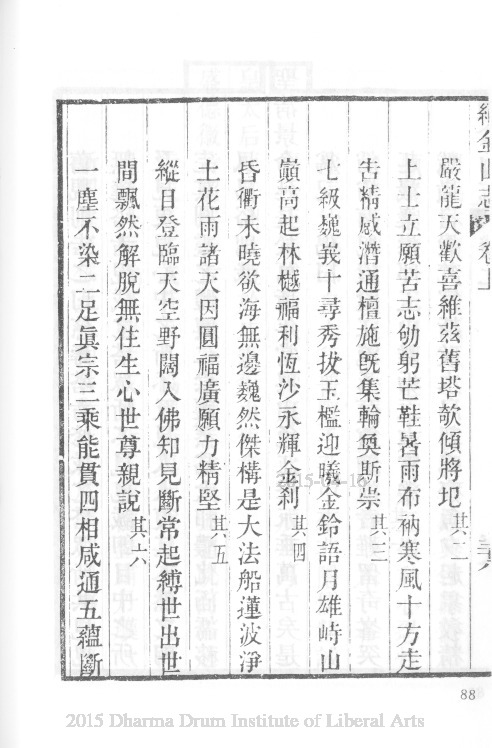 續金山志 卷上
嚴龍天歡喜維茲舊塔欹傾將圮其二
上士立願苦志劬躬芒鞋暑雨布衲寒風十方走
告精感潛通檀施既集輪奐斯崇其三
七級巍峩十尋秀拔玉檻迎曦金鈴語月雄峙山
巔高起林樾福利恆沙永輝金刹其四
昏衢未曉欲海無邊巍然傑構是大法船蓮波淨
土花雨諸天因圓福廣願力精堅其五
縱目登臨天空野闊入佛知見斷常起縛世出世
間飄然解脫無住生心世尊親說其六
一塵不染二足眞宗三乘能貫四相咸通五蘊斷
88
2015 Dharma Drum Institute of Liberal Arts